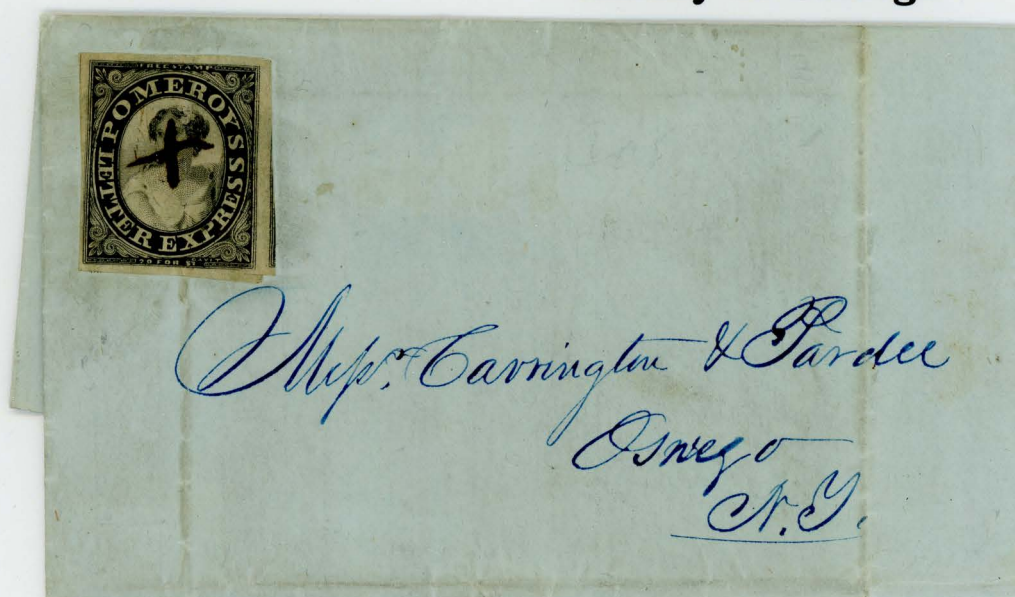 FREE STAMP
POMEROY'S LETTER EXPRESS
20 FOR $1
Mess.rs Carrington & Pardee
Oswego
N.Y.